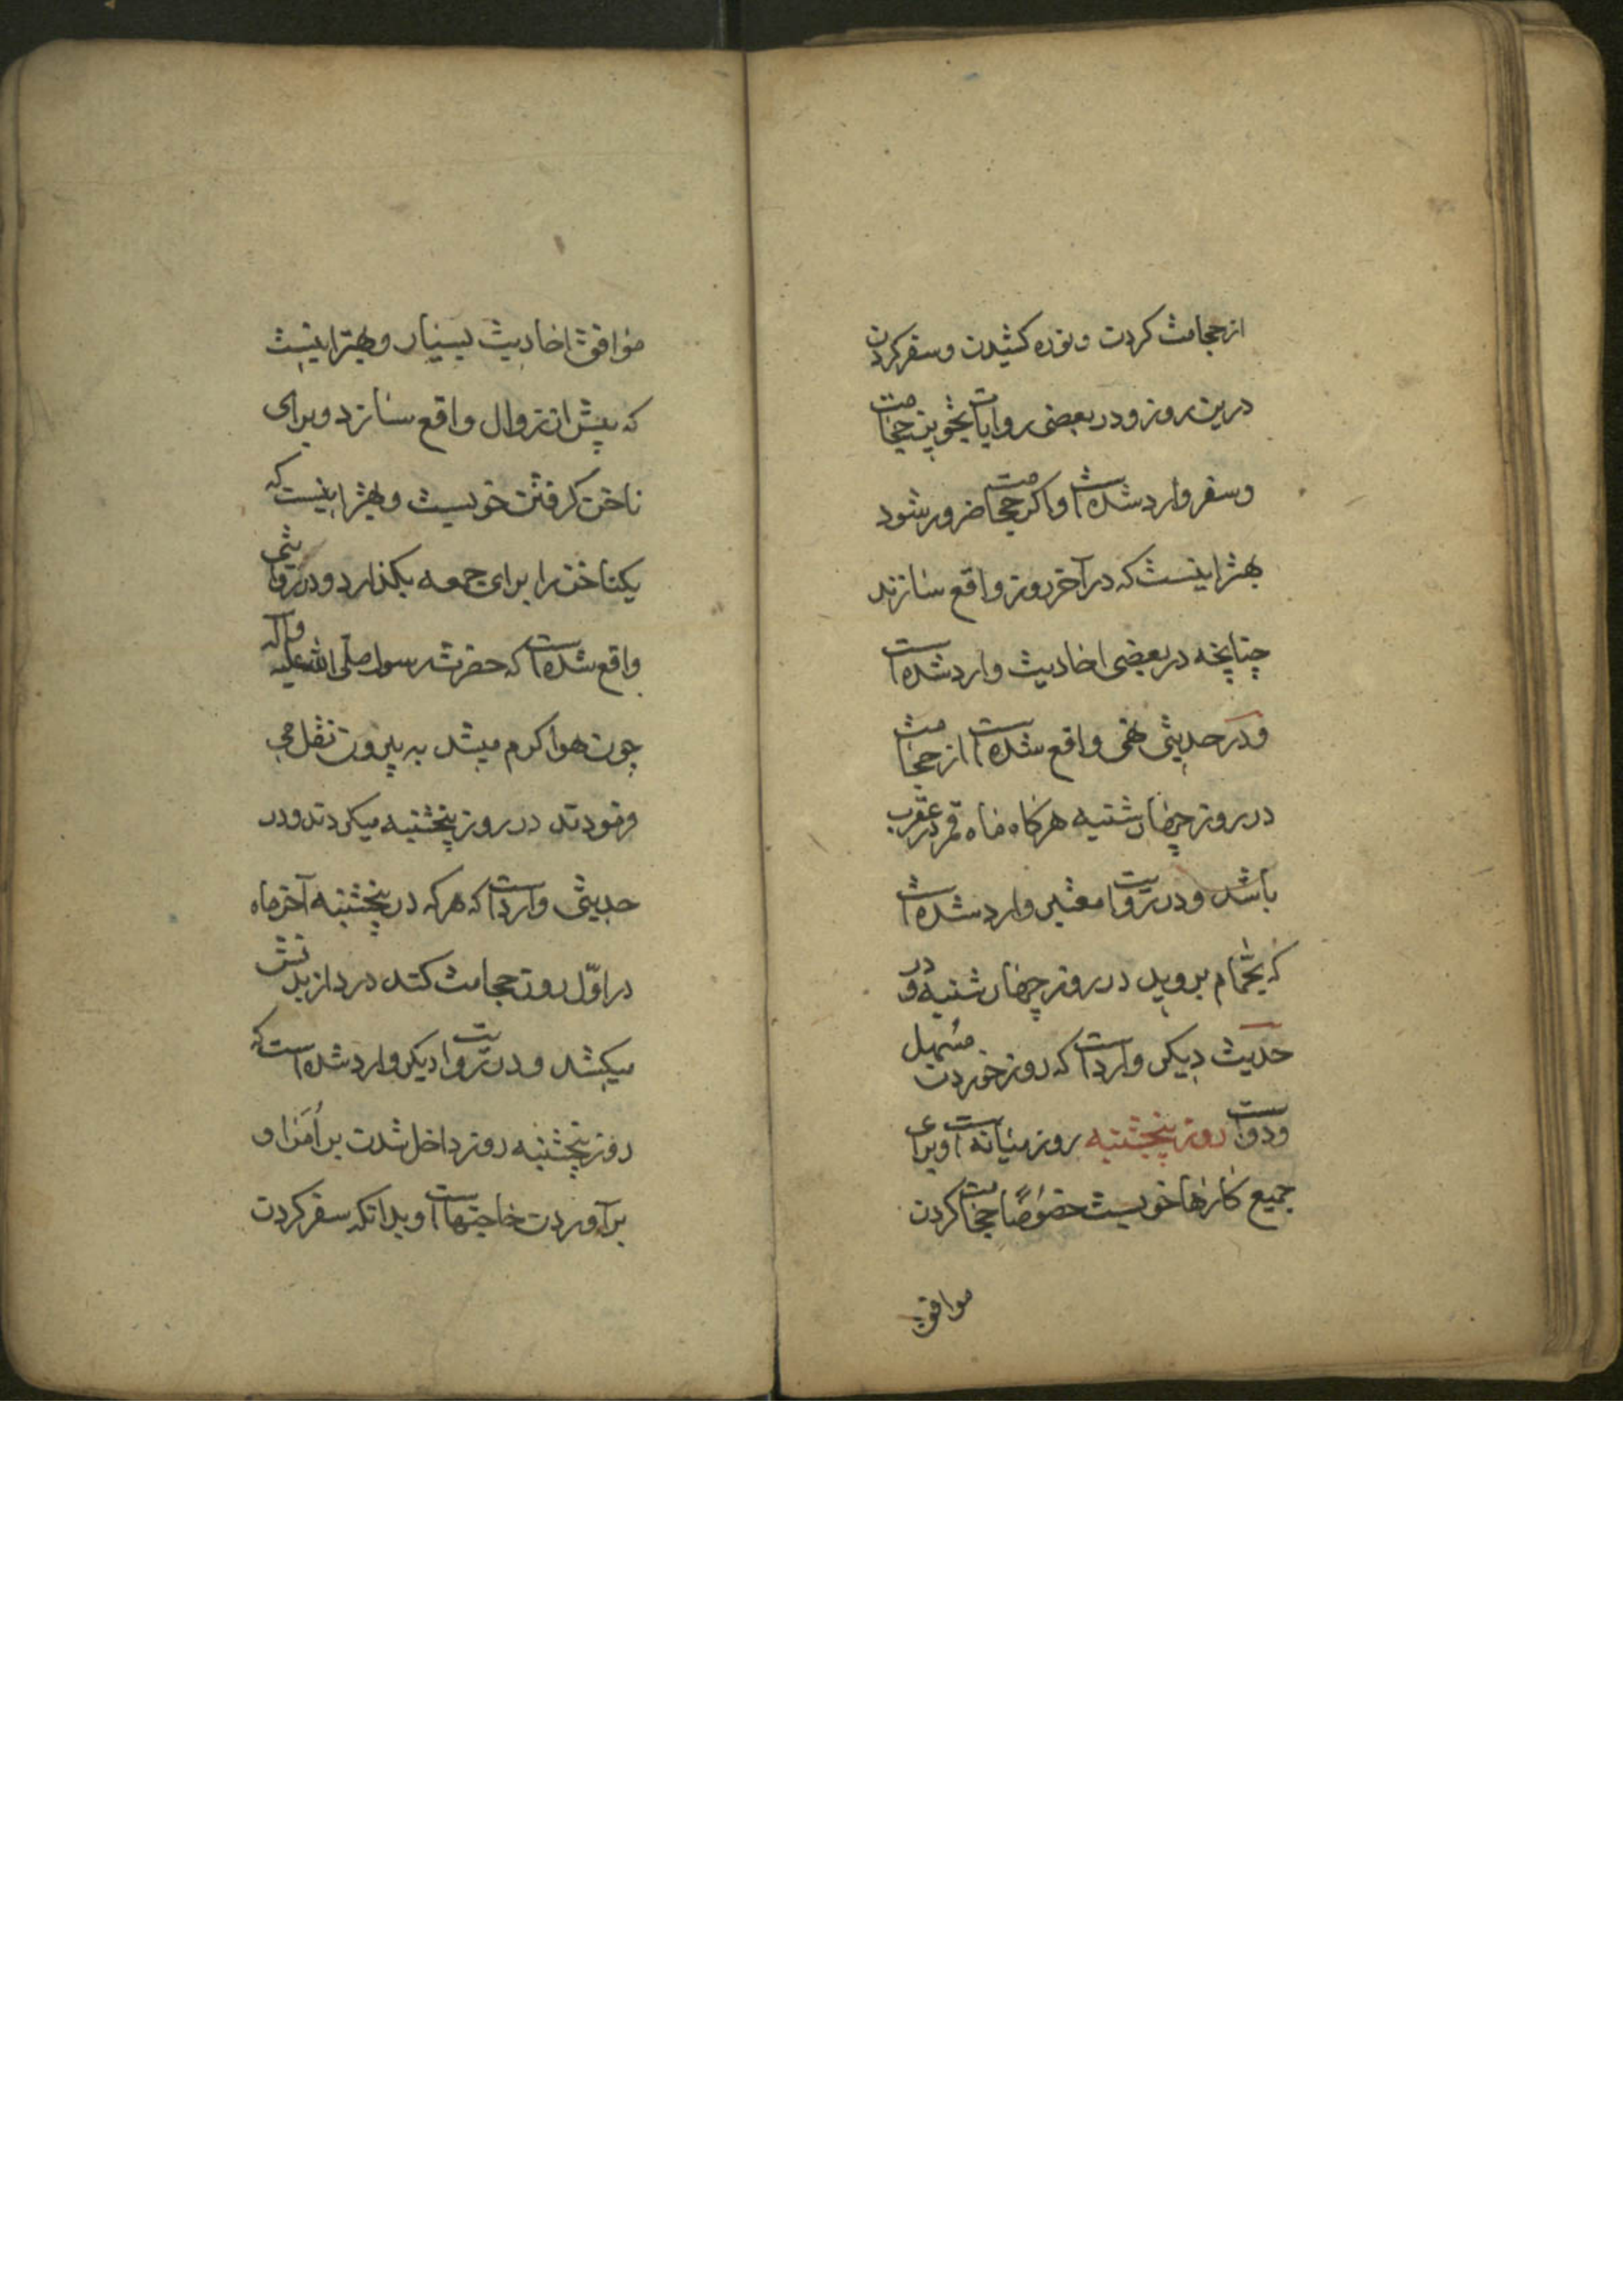 از حجامت کردن و نوره کشیدن و سفر کردن
درین روز و در بعضی روایات تجویز حجامت
و سفر وارد شده است و اکر حجامت ضرور شود
بهتر اینست که در آخر روز واقع سازند
چنانچه در بعضی احادیث وارد شده است
و در حدیثی نهی واقع شده است از حجامت
در روز چهارشنبه هرکاه ماه قمر در عقرب
باشد و در روایت معتبر وارد شده است
که بحمام بروید در روز چهارشنبه و در
حدیث دیکر وارد است که روز خوردن مسهل
و دواست روز پنجشنبه روز میانه است و برای
جمیع کارها خوبست خصوصًا حجامت کردن
موافق
موافق احادیث بسیار و بهتر اینست
که پیش از زوال واقع سازد و برای
ناخن کرفتن خوبست و بهتر اینست که
یکناخن را برای جمعه بکذارد و در روایتی
واقع شده است که حضرت رسول صلی الله علیه وآله
چون هوا کرم میشد به بیرون نقل می
فرمودند در روز پنجشنبه میکردند و در
حدیثی وارد است که هرکه در پنجشنبه آخر ماه
در اوّل روز حجامت کند درد از بدنش
میکشد و در روایت دیکر وارد شده است که
روز پنجشنبه روز داخل شدن بر اُمَرا و
برآوردن حاجتهاست و بدانکه سفر کردن